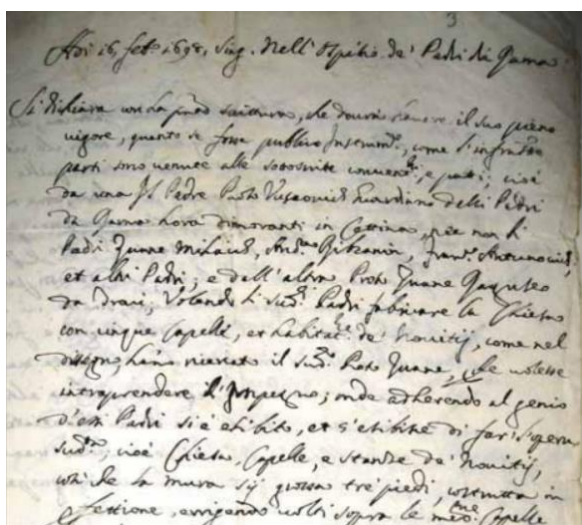 3
Adi 16, feb.º 1698, Sing. Nell' Ospitio de' Padri di Rama
Si dichiara con la pnte scrittura, che dovrà havere il suo pieno
vigore, quanto se fosse publico Instrum.to, come l'infratte
parti sono venute alle sottoscritte, e patti; cioè
da una Il Padre Guardiano delli Padri
da Rama hora dimoranti in Cettina, nec non li
Padri Zuane
et altri Padri, e dall'altra Proto Zuane
da Volendo li sud.i Padri fabricare la Chiesa
con cinque Capelle, et habitat.ne de' Novitij, come nel
dissegno, hano ricercato il sud.to Proto Zuane, che volesse
intraprendere l'Impegno; onde adherendo al genio
d'essi Padri si è esibito, et s'esibisce di far l'opera
sud.ta, cioè Chiesa, Capelle, e stanze de' Novitij,
con che la mura sij grossa trè piedi, costrutta in
erigendo volti sopra le med.me Capelle